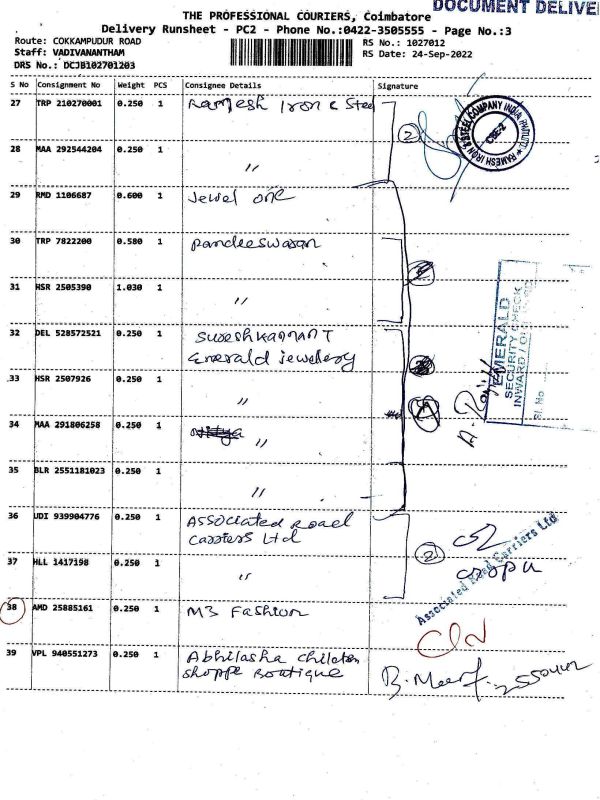 DOCUMENT DELIVE
THE PROFESSIONAL COURIERS, Coimbatore
Delivery Runsheet - PC2 - Phone No.:0422-3505555 - Page No.:3
Route: COKKAMPUDUR ROAD
RS No.: 1027012
Staff: VADIVANANTHAM
RS Date: 24-Sep-2022
DRS No.: DCJB102701203
S No Consignment No Weight PCS Consignee Details Signature
27 TRP 210270001 0.250 1 Ramesh Iron & Steel
2
RAMESH IRON & STEEL COMPANY INDIA
CBE-2
28 MAA 292544204 0.250 1 "
29 RMD 1106687 0.600 1 Jewel one
30 TRP 7822200 0.580 1 Pandeeswaran
31 HSR 2505390 1.030 1 "
EMERALD
SECURITY CHECK
INWARD /
Sl. No
32 DEL 528572521 0.250 1 Sureshkannan T
Emerald jewellery
33 HSR 2507926 0.250 1 "
34 MAA 291806258 0.250 1 "
35 BLR 2551181023 0.250 1 "
36 UDI 939904776 0.250 1 Associated Road
Carriers Ltd
2
Associated Road Carriers Ltd
37 HLL 1417198 0.250 1 "
38 AMD 25885161 0.250 1 M3 Fashion
39 VPL 940551273 0.250 1 Abhilasha children
shoppe Boutique